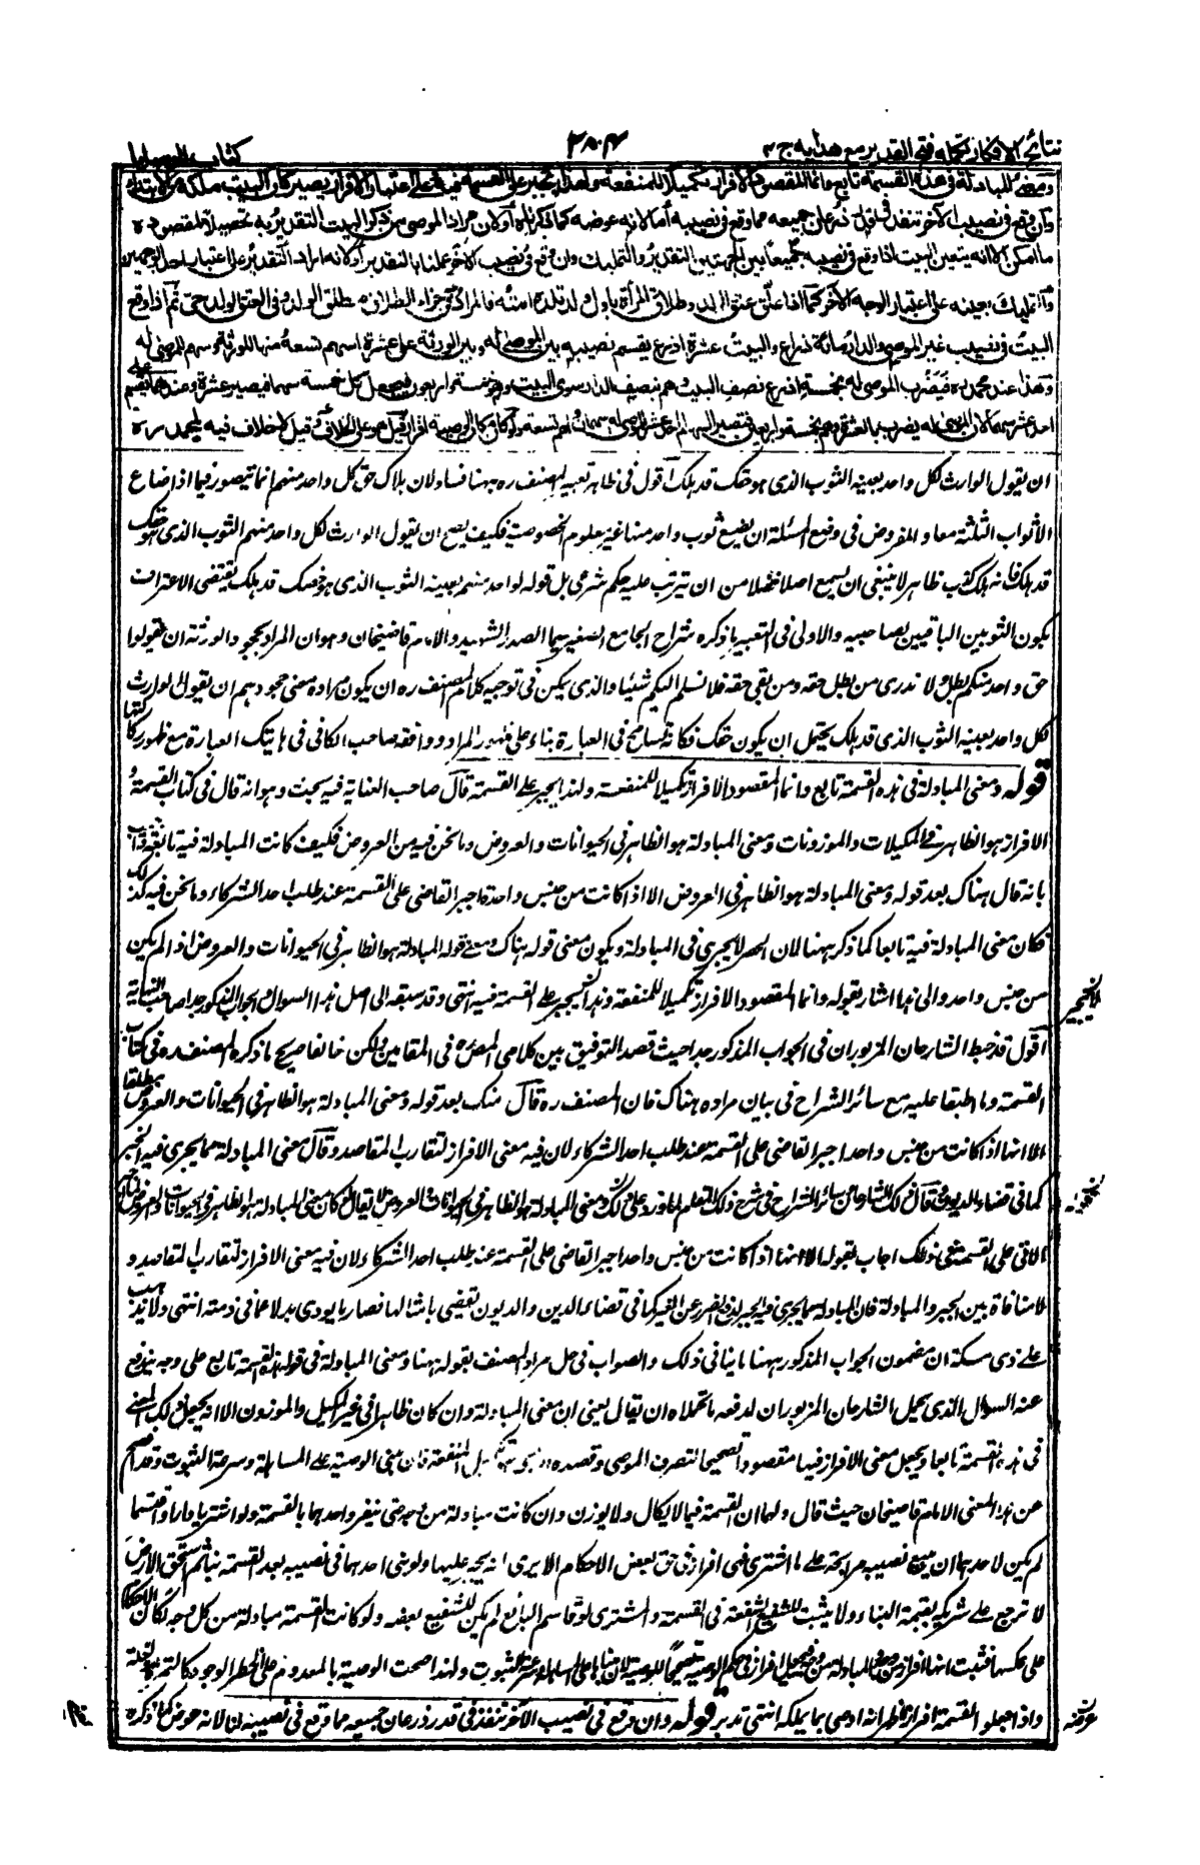 نتائج الافكار تكمله فتح القدير مع هدايه ج ٤
كتاب الوصايا
ومعنى المبادلة فى هذه القسمة تابع وانما المقصود الافراز تكميلا للمنفعة ولهذا يجبر على القسمة فيه فعلى اعتبار الافراز يصير كأن البيت ملكه من الابتداء
وان وقع فى نصيب الآخر تنفذ فى قدر ذرعان جميعه مما وقع فى نصيبه أما لانه عوضه كما ذكرناه أو لان مراد الموصى من ذكر البيت التقدير به تحصيلا لمقصوده
ما امكن الا انه يتعين البيت اذا وقع فى نصيبه جمعا بين الجهتين التقدير والتمليك وان وقع فى نصيب الآخر عملنا بالتقدير أو لانه اراد التقدير على اعتبار احد الوجهين
والتمليك بعينه على اعتبار الوجه الآخر كما اذا علق عتق الولد وطلاق المرأة باول ولد تلده امته فالمراد فى جزاء الطلاق مطلق الولد وفى العتق الولد حى ثم اذا وقع
البيت فى نصيب غير الموصى والدار مائة ذراع والبيت عشرة اذرع يقسم نصيبه بين الموصى له وبين الورثة على عشرة اسهم تسعة منها للورثة وسهم للموصى له
وهذا عند محمد ره فيضرب الموصى له بخمسة اذرع نصف البيت وهم بنصف الدار سوى البيت وهو خمسة واربعون فيجعل كل خمسة سهما فيصير عشرة وعندهما يقسم على
احد عشر سهما لان الموصى له يضرب بالعشرة وهم بخمسة واربعين فتصير السهام احد عشر للموصى له سهمان ولهم تسعة ولو كان مكان الوصية اقرار قيل هو على الخلاف وقيل لا خلاف فيه لمحمد ره
ان يقول الوارث لكل واحد بعينه الثوب الذى هو حقك قد هلك آقول فى ظاهر تعبير المصنف ره ههنا فساد لان هلاك حق كل واحد منهم انما يتصور فيما اذا ضاع
الأثواب الثلثة معا والمفروض فى وضع المسئلة ان يضيع ثوب واحد منها غير معلوم الخصوصية فكيف يصح ان يقول الوارث لكل واحد منهم الثوب الذى هو حقك
قد هلك فانه كذب ظاهر لا ينبغى ان يسمع اصلا فضلا من ان يترتب عليه حكم شرعى بل قوله لواحد منهم بعينه الثوب الذى هو حقك قد هلك يقتضى الاعتراف
بكون الثوبين الباقيين لصاحبيه والاولى فى التعبير ما ذكره شراح الجامع الصغير سيما الصدر الشهيد والامام قاضيخان وهو ان المراد بجحود الورثة ان يقولوا
حق واحد منكم بطل ولا ندرى من بطل حقه ومن بقى حقه فلا نسلم اليكم شيئا والذى يمكن فى توجيه كلام المصنف ره ان يكون مراده بمعنى جحودهم ان يقول الوارث
لكل واحد بعينه الثوب الذى قد هلك يحتمل ان يكون حقك فكانه تسامح فى العبارة بناء على ظهور المراد ووافقه صاحب الكافى فى هاتيك العبارة مع ظهور ركاكتها
قوله ومعنى المبادلة فى هذه القسمة تابع وانما المقصود الافراز تكميلا للمنفعة ولهذا يجبر على القسمة قال صاحب العناية فيه بحث وهو انه قال فى كتاب القسمة
الافراز هو الظاهر فى المكيلات والموزونات ومعنى المبادلة هو الظاهر فى الحيوانات والعروض وما نحن فيه من العروض فكيف كانت المبادلة فيه تابعة واجاب
بانه قال هناك بعد قوله ومعنى المبادلة هو الظاهر فى العروض الا اذا كانت من جنس واحد اجبر القاضى على القسمة عند طلب احد الشركاء وما نحن فيه كذلك
فكان معنى المبادلة فيه تابعا كما ذكر ههنا لان الجبر لا يجرى فى المبادلة ويكون معنى قوله هناك ومعنى قوله المبادلة هو الظاهر فى الحيوانات والعروض اذا لم يكن
من جنس واحد والى هذا اشار بقوله وانما المقصود الافراز تكميلا للمنفعة ولهذا يجبر على القسمة فيه انتهى وقد سبقه الى اصل هذا السوال والجواب المذكور جدا صاحب النهاية
آقول قد خبط الشارحان المزبوران فى الجواب المذكور جدا حيث قصدا التوفيق بين كلامى المصنف ره فى المقامين ولكن خالفا صريح ما ذكره المصنف ره فى كتاب
القسمة وما اطبقا عليه مع سائر الشراح فى بيان مراده هناك فان المصنف ره قال هناك بعد قوله ومعنى المبادلة هو الظاهر فى الحيوانات والعروض
الا انها اذا كانت من جنس واحد اجبر القاضى على القسمة عند طلب احد الشركاء لان فيه معنى الافراز لتقارب المقاصد وقال معنى المبادلة مما يجرى فيه الجبر
كما فى قضاء الديون
الآتى على القسمة فى ذلك اجاب بقوله الا انها اذا كانت من جنس واحد اجبر القاضى على القسمة عند طلب احد الشركاء لان فيه معنى الافراز لتقارب المقاصد و
لا منافاة بين الجبر والمبادلة فان المبادلة مما يجرى فيه الجبر لدفع الضرر عن الغير كما فى قضاء الدين والديون تقضى بامثالها فصار ما يودى بدلا عما فى ذمته انتهى ولا يذهب
على ذى مسكة ان مضمون الجواب المذكور ههنا ينافى ذلك والصواب فى حل مراد المصنف بقوله ههنا ومعنى المبادلة فى قوله هذه القسمة تابع على وجه يندفع
عنه السوال الذى تحمل الشارحان المزبوران لدفعه ما تحملاه ان يقال يعنى ان معنى المبادلة وان كان ظاهرا فى غير المكيل والموزون الا انه يجعل ذلك المعنى
فى هذه القسمة تابعا ويجعل معنى الافراز فيها مقصودا تصحيحا لتصرف الموصى وقصده المنفعة فان مبنى الوصية على المساهلة وسرعة الثبوت وقد افصح
عن هذا المعنى الامام قاضيخان حيث قال ولهما ان القسمة فيما لا يكال ولا يوزن وان كانت مبادلة من وجه حتى ينفرد احدهما بالقسمة ولو اشتريا دارا واقتسما
لم يكن لاحدهما ان يبيع نصيبه مرابحة على ما اشترى فهى افراز فى حق بعض الاحكام الا يرى انه يجبر عليها ولو بنى احدهما فى نصيبه بعد القسمة بناء ثم استحق الارض
لا يرجع على شريكه بقيمة البناء ولا يثبت للشفيع الشفعة فى القسمة والمشترى لو قاسم البائع لم يكن للشفيع نقضه ولو كانت القسمة مبادلة من كل وجه لكان الاحكام
على عكسها فثبت انها افراز من وجه مبادلة من وجه فتجعل افرازا فى حكم الوصية تصحيحا للوصية لان مبناها على المساهلة وسرعة الثبوت ولهذا صحت الوصية بالمعدوم على خطر الوجود كالثمرة والغلة
واذا جعلوا القسمة افرازا ظهر انه اوصى بما يملكه انتهى تدبر قوله وان وقع فى نصيب الآخر تنفذ فى قدر ذرعان جميعه مما وقع فى نصيبه لنا لانه عوض كما ذكره